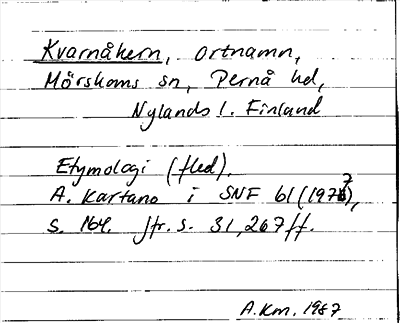 Kvarnåkern, ortnamn,
Mörskoms sn, Pernå hd,
Nylands l. Finland
Etymologi (fled).
A. Kartano i SNF 61 (1977),
s. 164. Jfr. s. 31, 267 ff.
A.Km. 1987